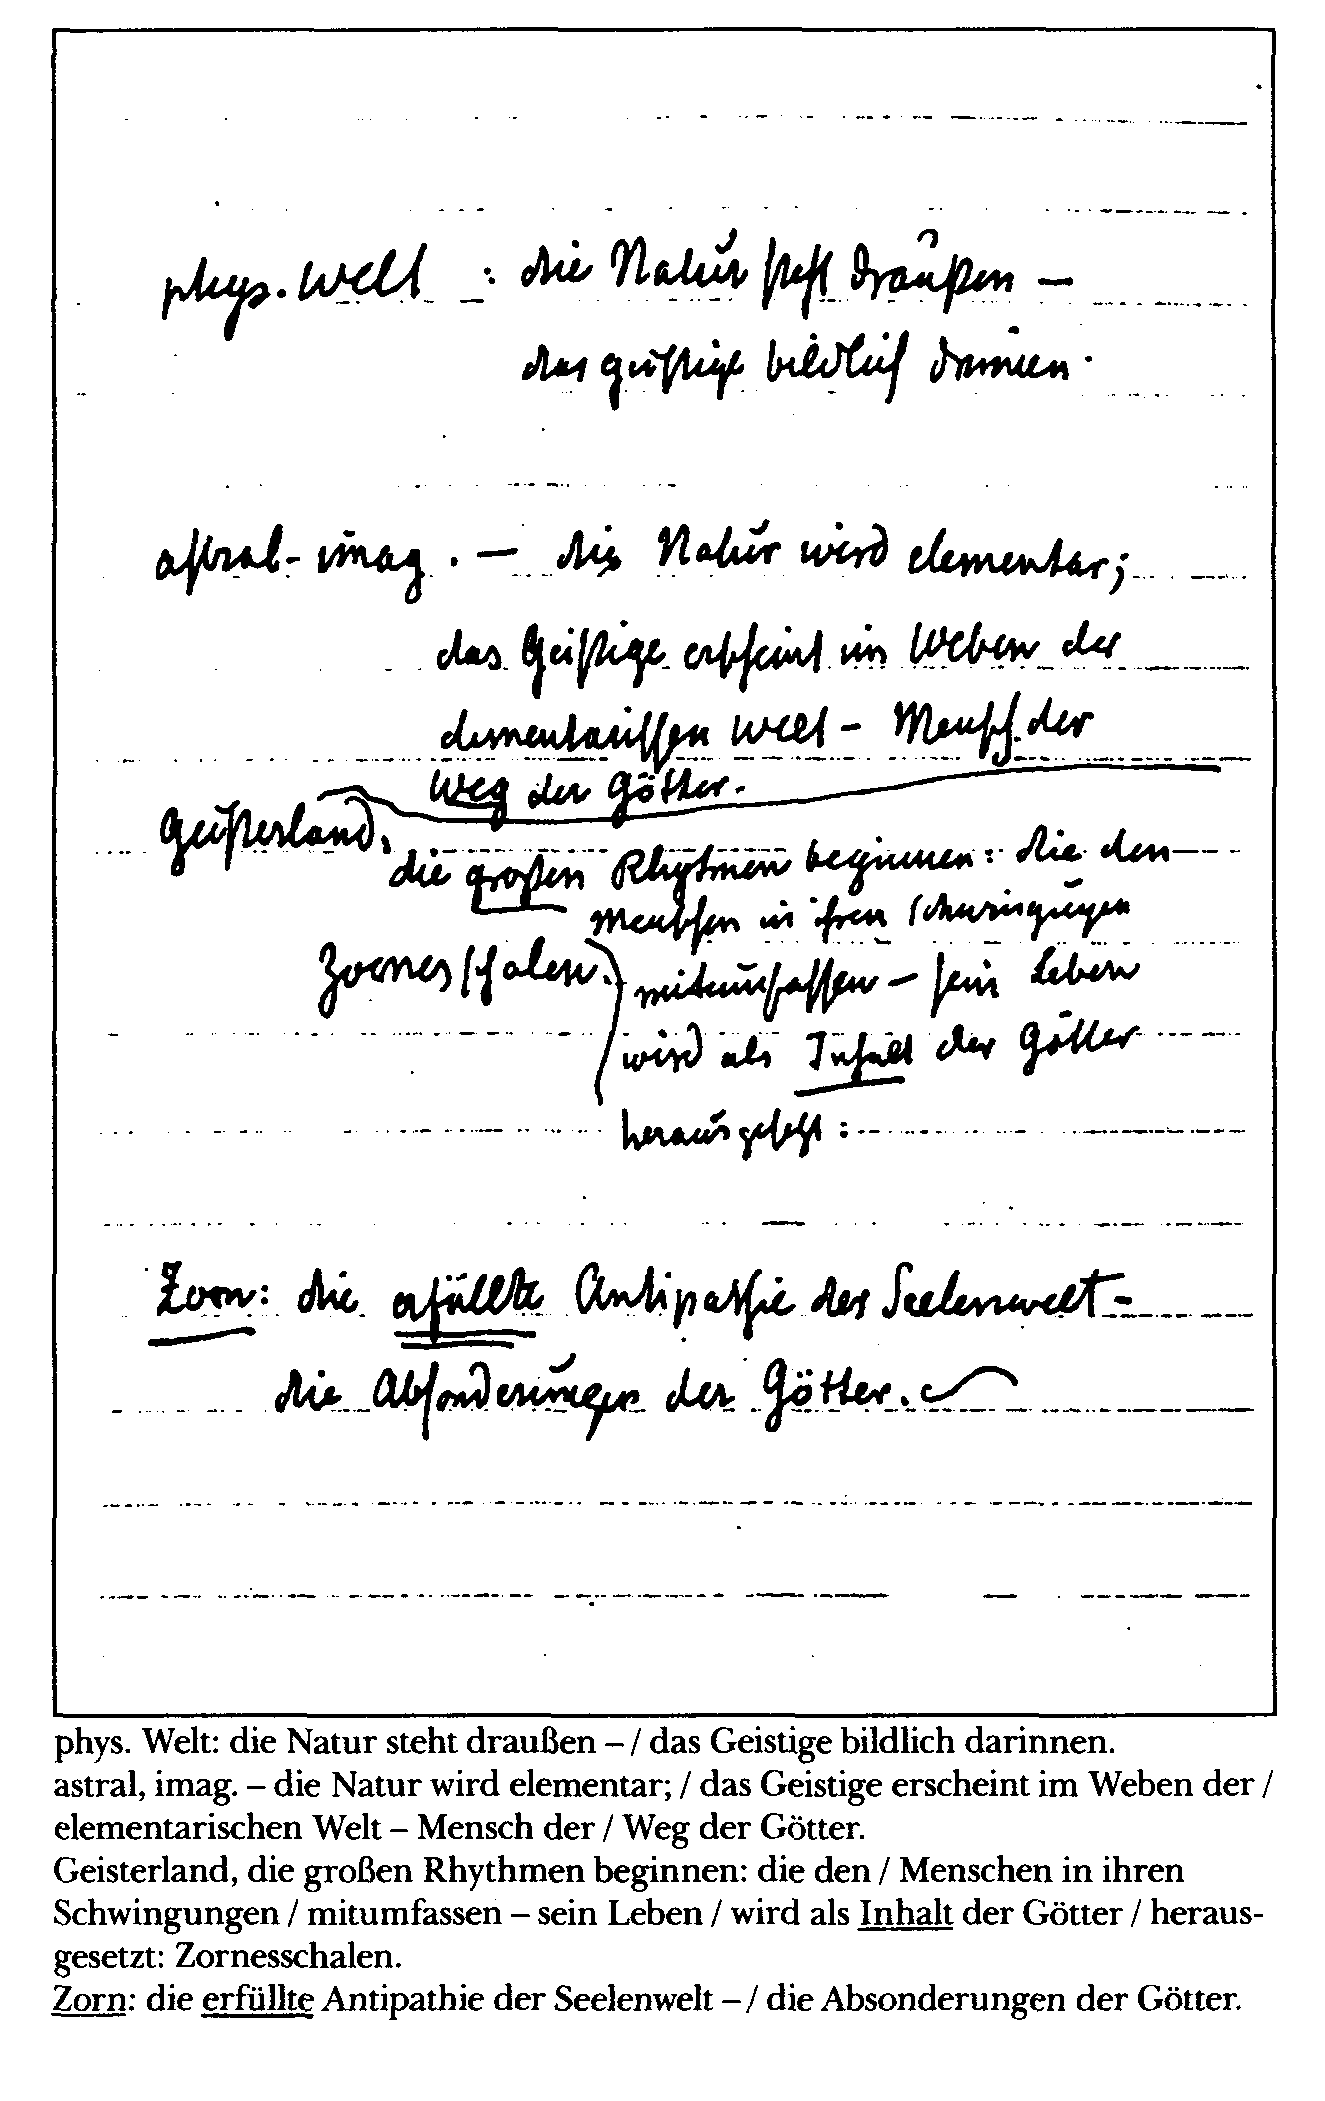 phys. Welt : die Natur steht draußen –
das geistige bildlich darinnen.
astral-imag. – die Natur wird elementar;
das Geistige erscheint im Weben der
elementarischen Welt – Mensch. der
Weg der Götter.
Geisterland,
die großen Rhytmen beginnen: die den
Menschen in ihren Schwingungen
Zornesschalen.
mitumfassen – sein Leben
wird als Inhalt der Götter
herausgesetzt:
Zorn: die erfüllte Antipathie der Seelenwelt –
die Absonderungen der Götter.
phys. Welt: die Natur steht draußen – / das Geistige bildlich darinnen.
astral, imag. – die Natur wird elementar; / das Geistige erscheint im Weben der /
elementarischen Welt – Mensch der / Weg der Götter.
Geisterland, die großen Rhythmen beginnen: die den / Menschen in ihren
Schwingungen / mitumfassen – sein Leben / wird als Inhalt der Götter / heraus-
gesetzt: Zornesschalen.
Zorn: die erfüllte Antipathie der Seelenwelt – / die Absonderungen der Götter.